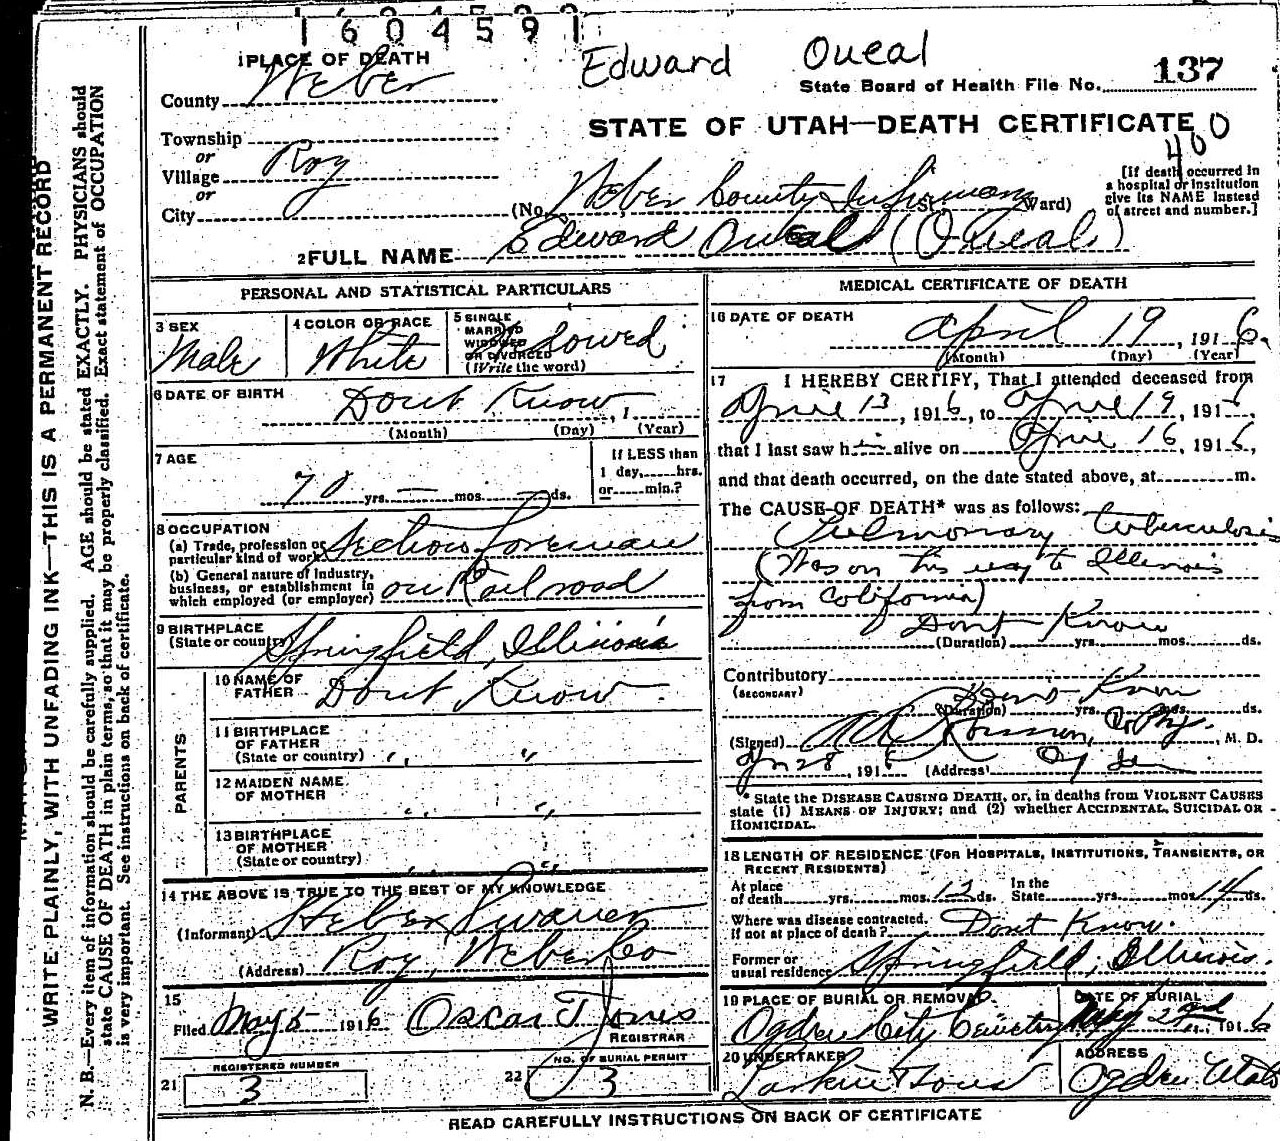 1604591
Edward Oueal
1 PLACE OF DEATH
County Weber
State Board of Health File No. 137
Township
or
Village Roy
or
City
STATE OF UTAH—DEATH CERTIFICATE
400
(No. Weber County Infirmary St. Ward)
[If death occurred in
a hospital or institution
give its NAME instead
of street and number.]
2 FULL NAME Edward Oueal (Oueal)
PERSONAL AND STATISTICAL PARTICULARS
3 SEX
Male
4 COLOR OR RACE
White
5 SINGLE
MARRIED
WIDOWED
OR DIVORCED
(Write the word)
Widowed
6 DATE OF BIRTH
Dont Know, 1
(Month) (Day) (Year)
7 AGE
70 yrs. — mos. — ds.
If LESS than
1 day, hrs.
or min.?
8 OCCUPATION
(a) Trade, profession or
particular kind of work Section Foreman
(b) General nature of industry,
business, or establishment in
which employed (or employer) on Railroad
9 BIRTHPLACE
(State or country) Springfield, Illinois
PARENTS
10 NAME OF
FATHER Dont Know
11 BIRTHPLACE
OF FATHER
(State or country) " "
12 MAIDEN NAME
OF MOTHER " "
13 BIRTHPLACE
OF MOTHER
(State or country) " "
14 THE ABOVE IS TRUE TO THE BEST OF MY KNOWLEDGE
(Informant) Heber
(Address) Roy, Weber Co
15
Filed May 5 1916 Oscar T Jones
REGISTRAR
21 REGISTERED NUMBER
3
22 NO. OF BURIAL PERMIT
3
MEDICAL CERTIFICATE OF DEATH
16 DATE OF DEATH
April 19, 1916.
(Month) (Day) (Year)
17 I HEREBY CERTIFY, That I attended deceased from
April 13, 1916, to April 19, 1916,
that I last saw him alive on April 16, 1916,
and that death occurred, on the date stated above, at m.
The CAUSE OF DEATH* was as follows:
Pulmonary tuberculosis
(Was on his way to Illinois
from California)
Dont Know
(Duration) yrs. mos. ds.
Contributory
(SECONDARY)
Dont Know
(Duration) yrs. mos. ds.
(Signed) Co Phy. , M. D.
Apr 28, 1916 (Address) Ogden
* State the DISEASE CAUSING DEATH, or, in deaths from VIOLENT CAUSES
state (1) MEANS OF INJURY; and (2) whether ACCIDENTAL, SUICIDAL OR
HOMICIDAL.
18 LENGTH OF RESIDENCE (FOR HOSPITALS, INSTITUTIONS, TRANSIENTS, OR
RECENT RESIDENTS)
At place
of death yrs. mos. 12 ds. In the
State yrs. mos. 14 ds.
Where was disease contracted,
if not at place of death? Dont Know.
Former or
usual residence Springfield, Illinois.
19 PLACE OF BURIAL OR REMOVAL
Ogden City Cemetery
DATE OF BURIAL
May 2nd, 1916
20 UNDERTAKER
Larkin & Sons
ADDRESS
Ogden Utah
READ CAREFULLY INSTRUCTIONS ON BACK OF CERTIFICATE
WRITE PLAINLY, WITH UNFADING INK—THIS IS A PERMANENT RECORD
N. B.—Every item of information should be carefully supplied. AGE should be stated EXACTLY. PHYSICIANS should
state CAUSE OF DEATH in plain terms, so that it may be properly classified. Exact statement of OCCUPATION
is very important. See instructions on back of certificate.